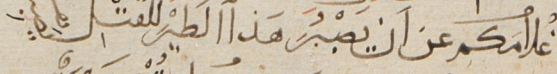 غُلامَكم عن أن يَصْبُرَ هَذا الطَيْر للقتل